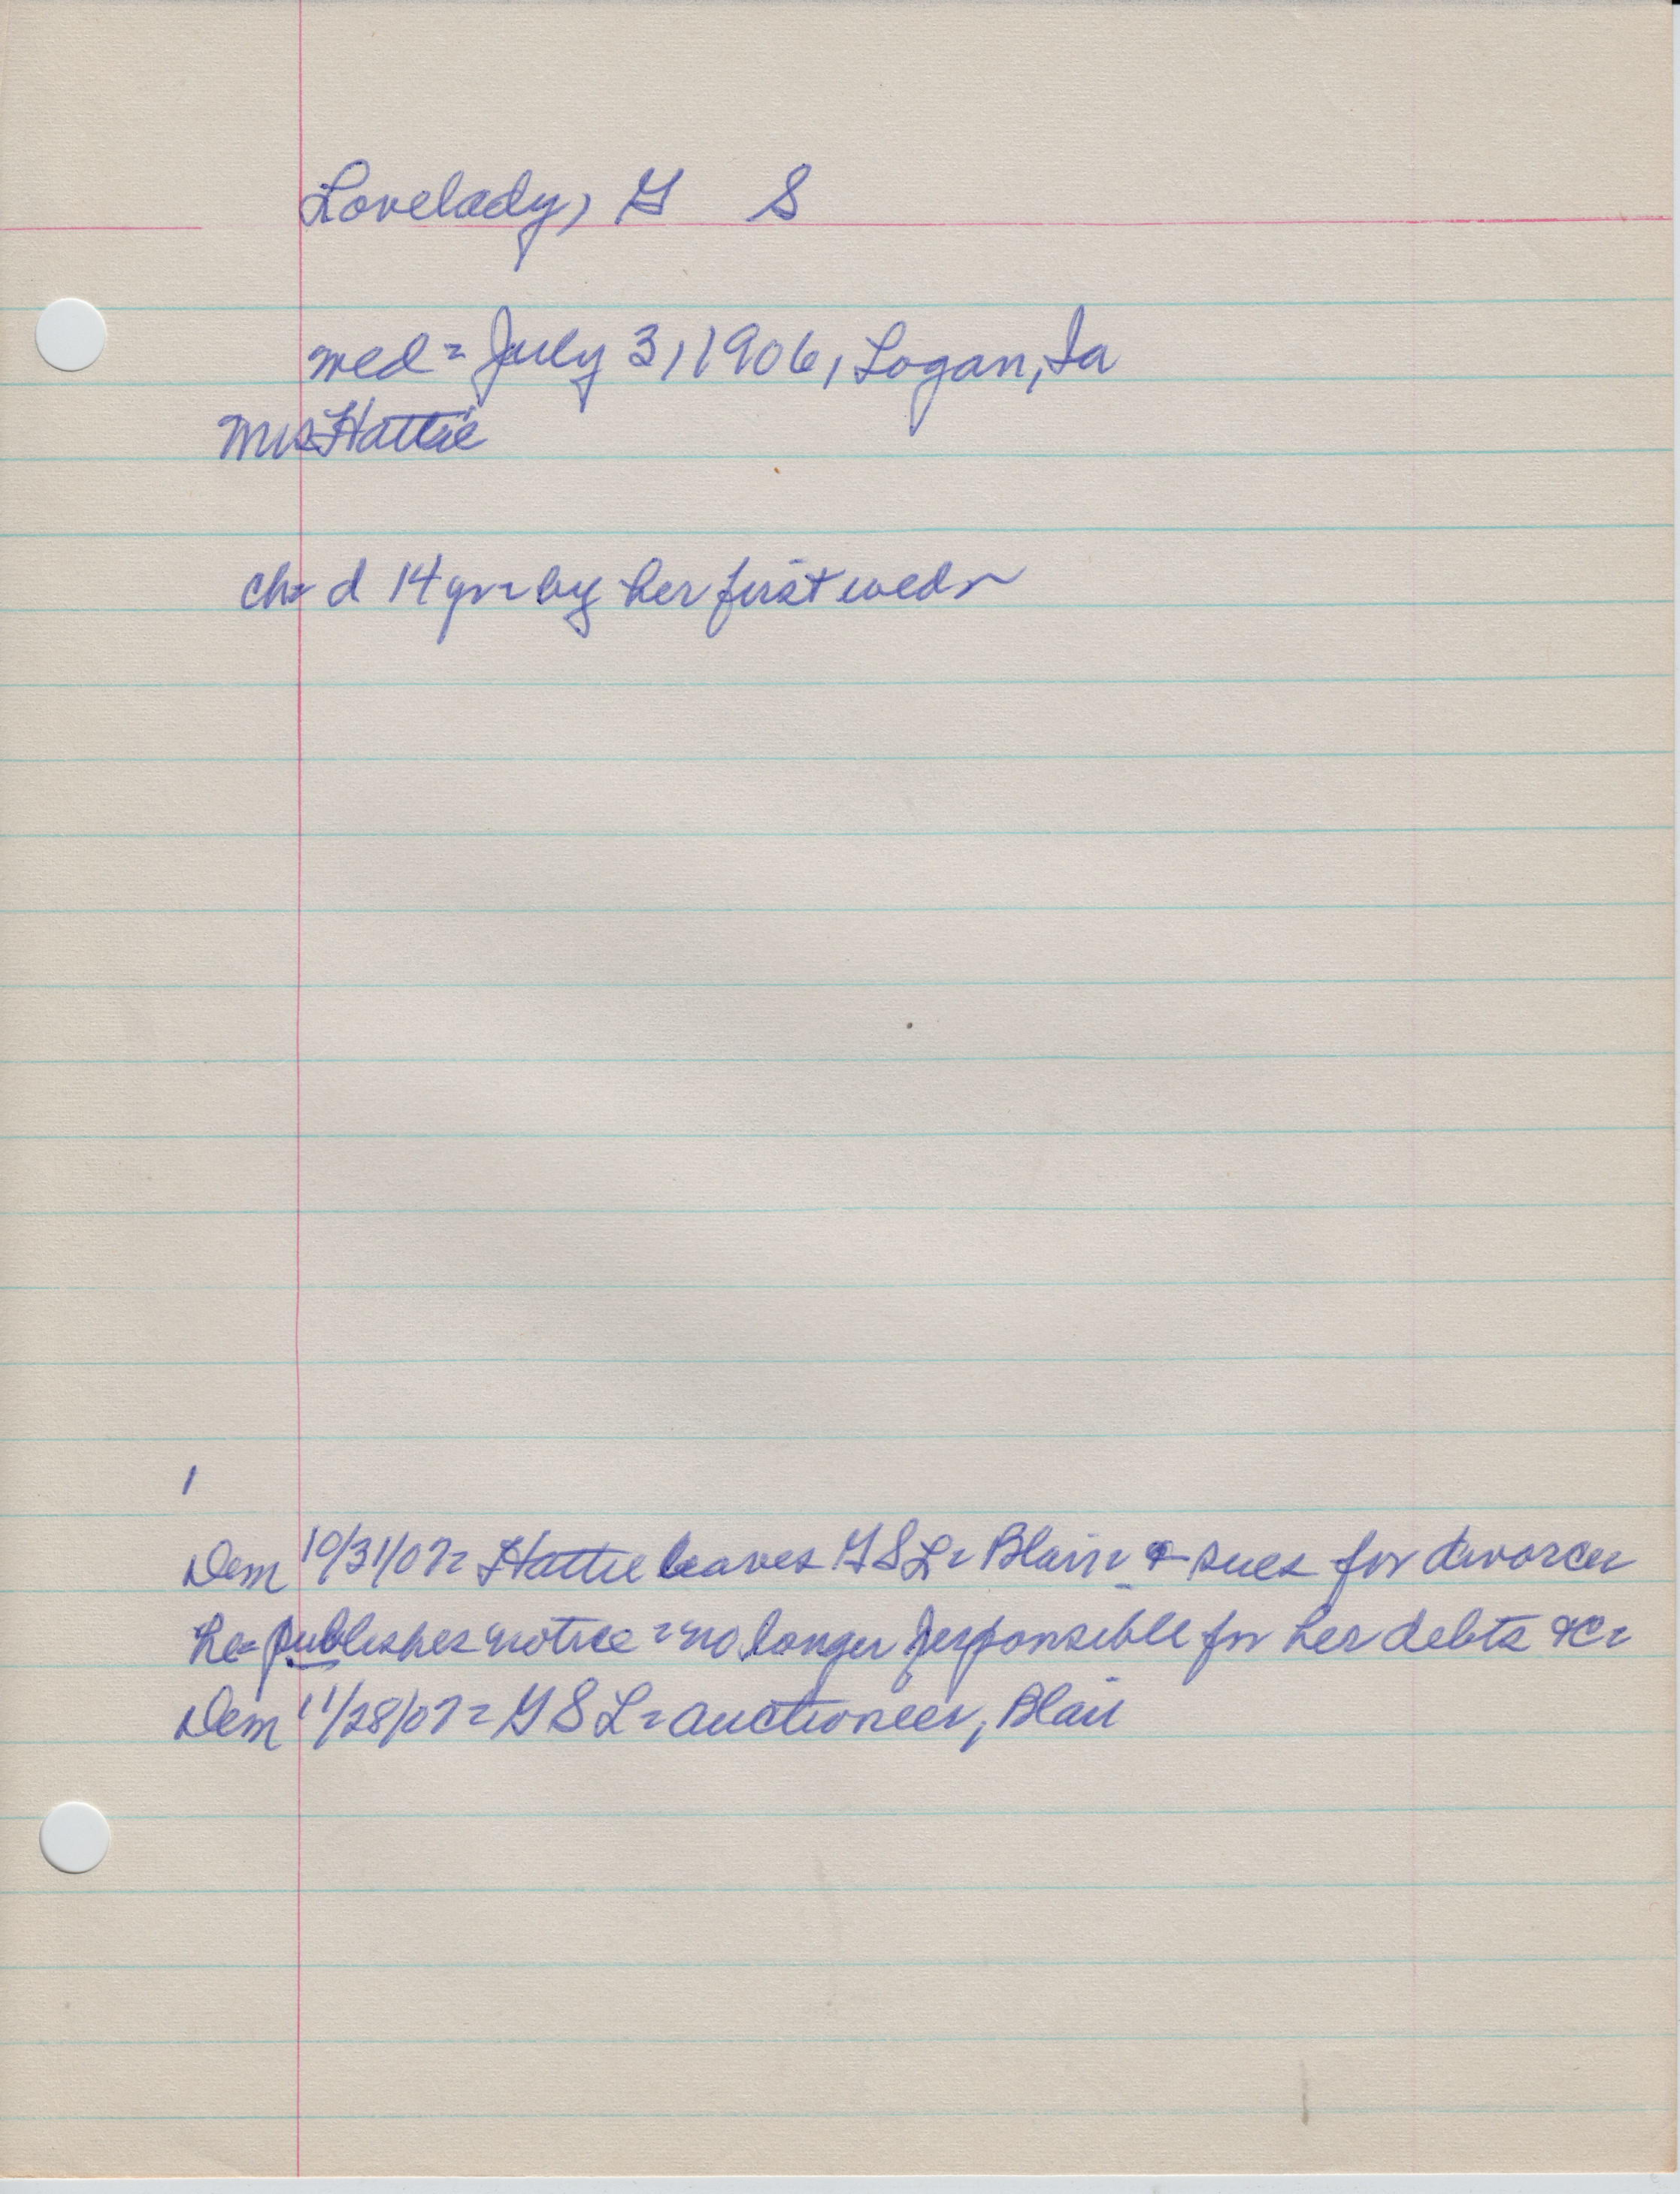 Lovelady, G S
wed = July 3, 1906, Logan, Ia
Mrs Hattie
ch = d 14 yr = by her first wed =
1
Dem 10/31/07 = Hattie leaves G S L = Blair = & sues for divorce =
he = publishes notice = no longer responsible for her debts &c =
Dem 11/28/07 = G S L = auctioneer, Blair